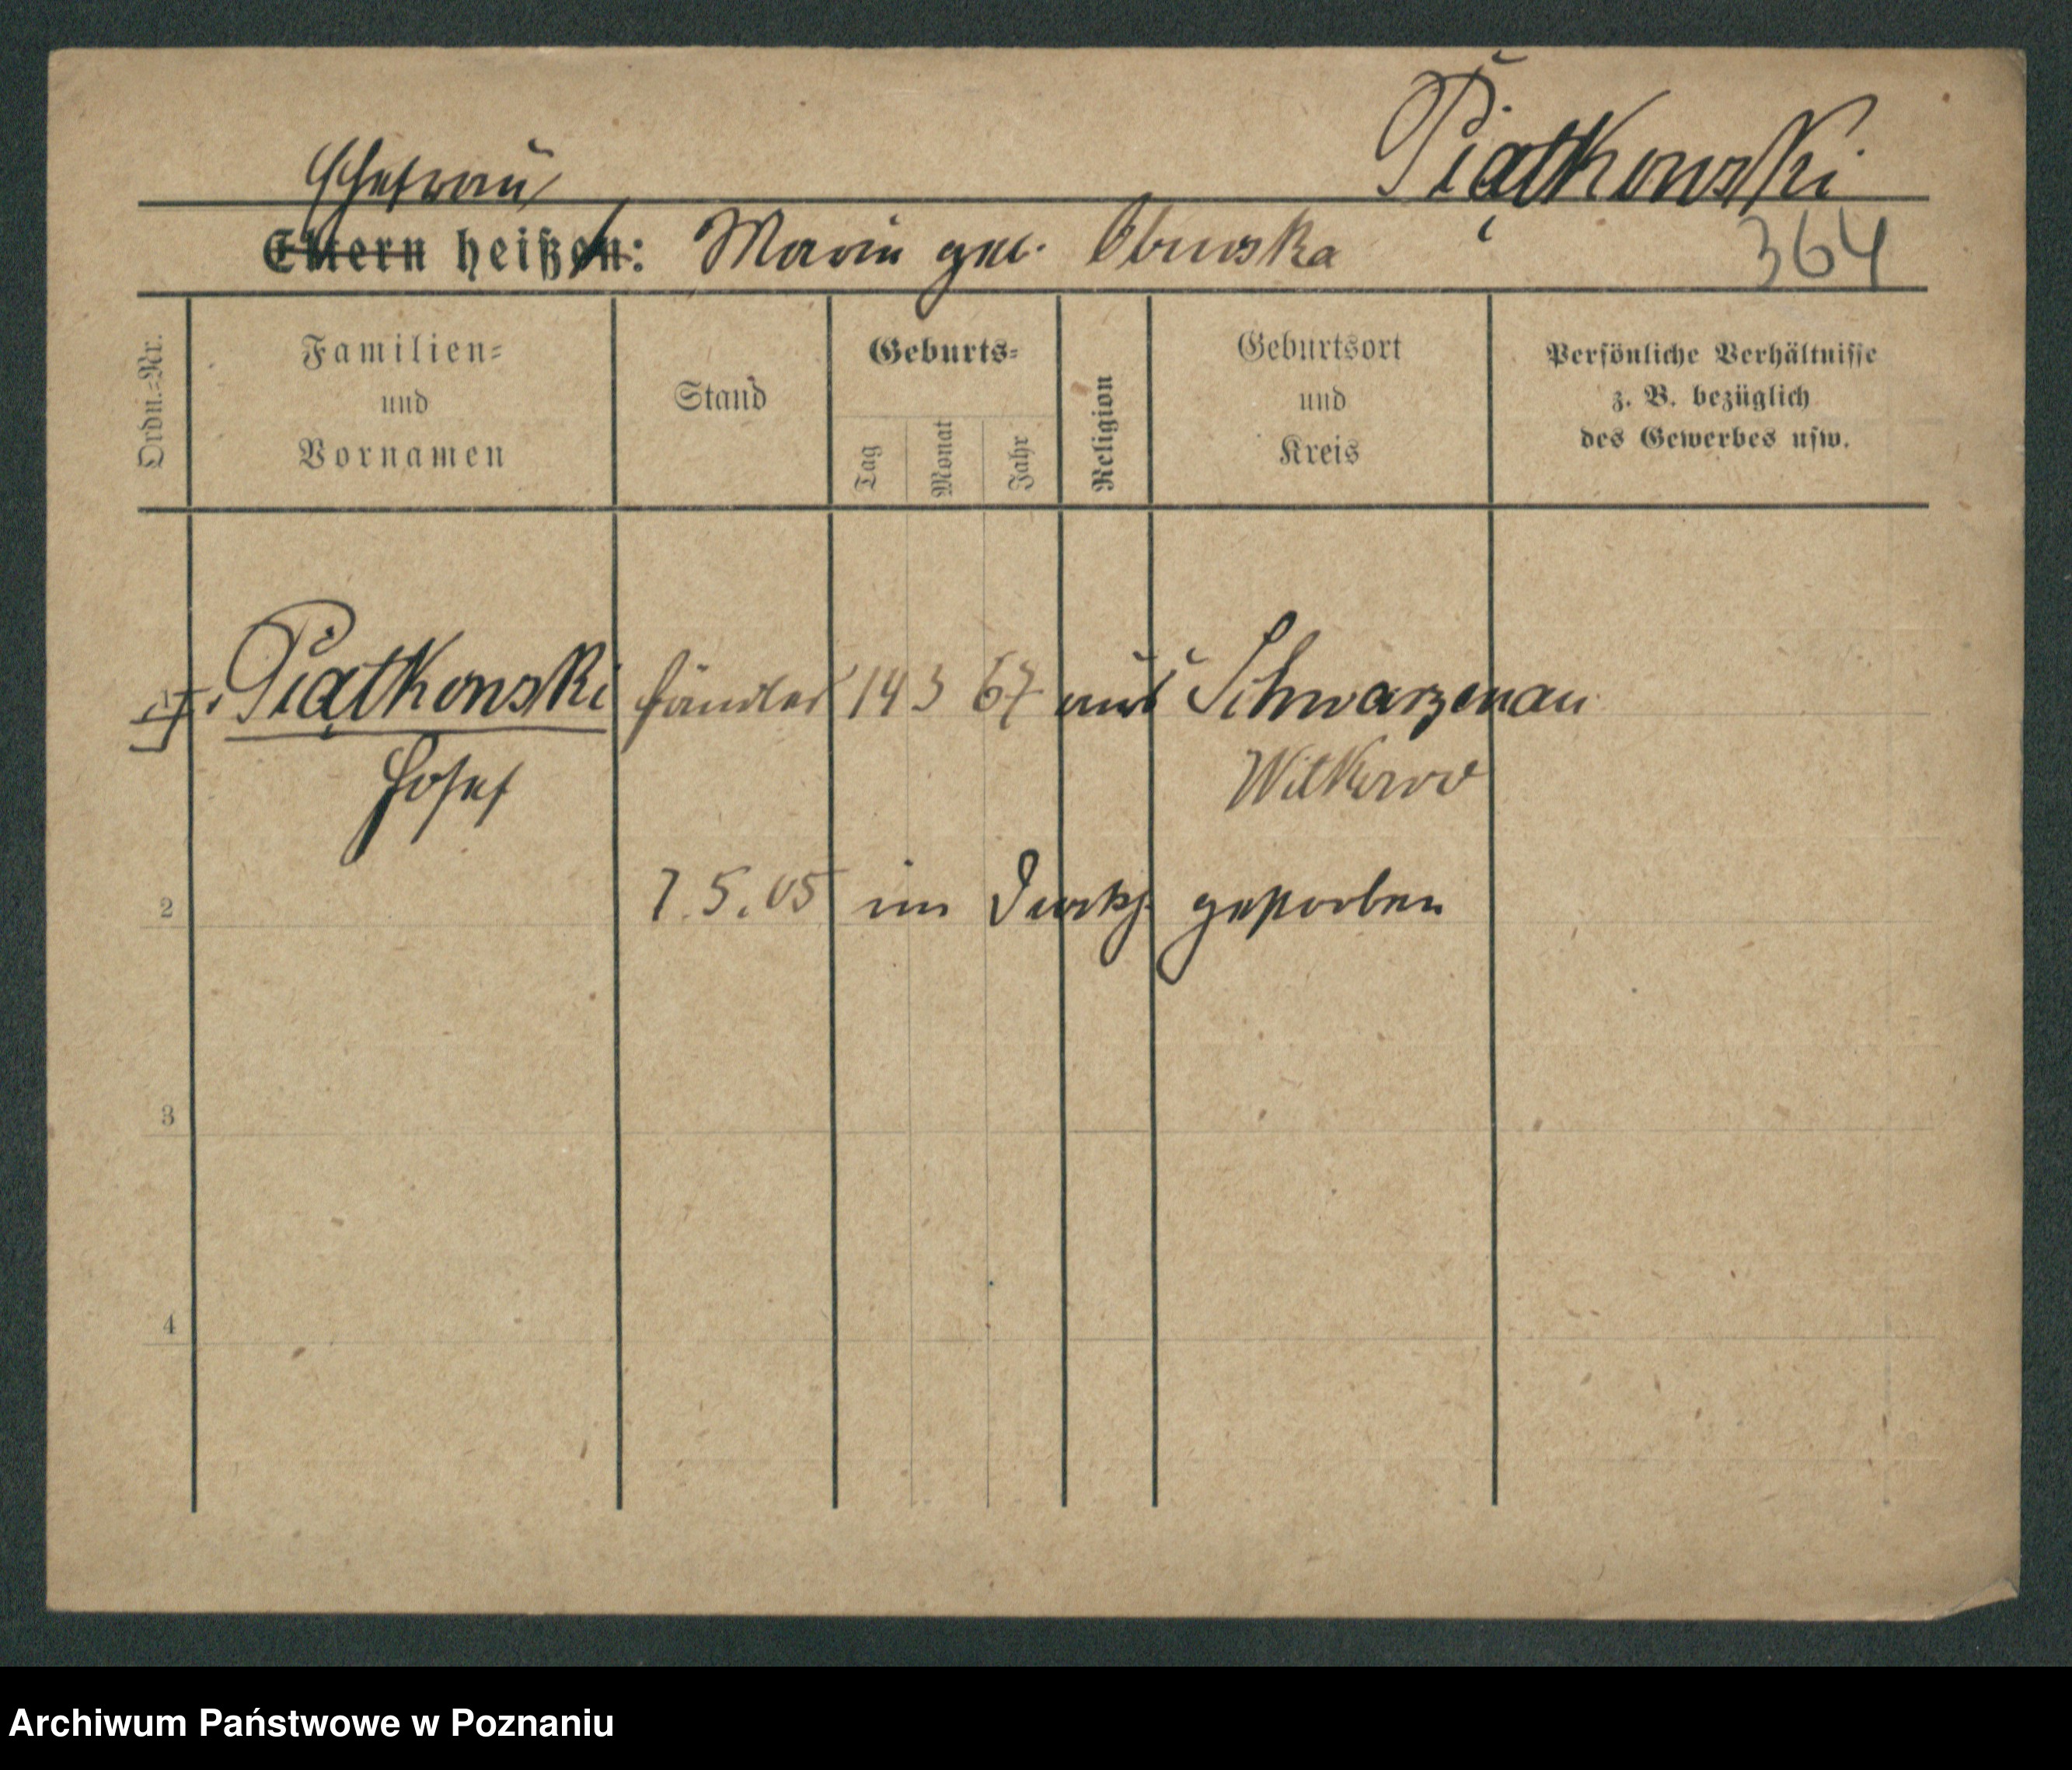 Piątkowski
Ehefrau
Eltern heißen: Maria geb. Obuska
364
Ordn.-Nr.
Familien-
und
Vornamen
Stand
Geburts-
Tag
Monat
Jahr
Religion
Geburtsort
und
Kreis
Persönliche Verhältnisse
z. B. bezüglich
des Gewerbes usw.
Piątkowski Händler 14 3 67 aus Schwarzenau
Josef Witkowo
2 7.5.05 im gestorben
3
4
Archiwum Państwowe w Poznaniu